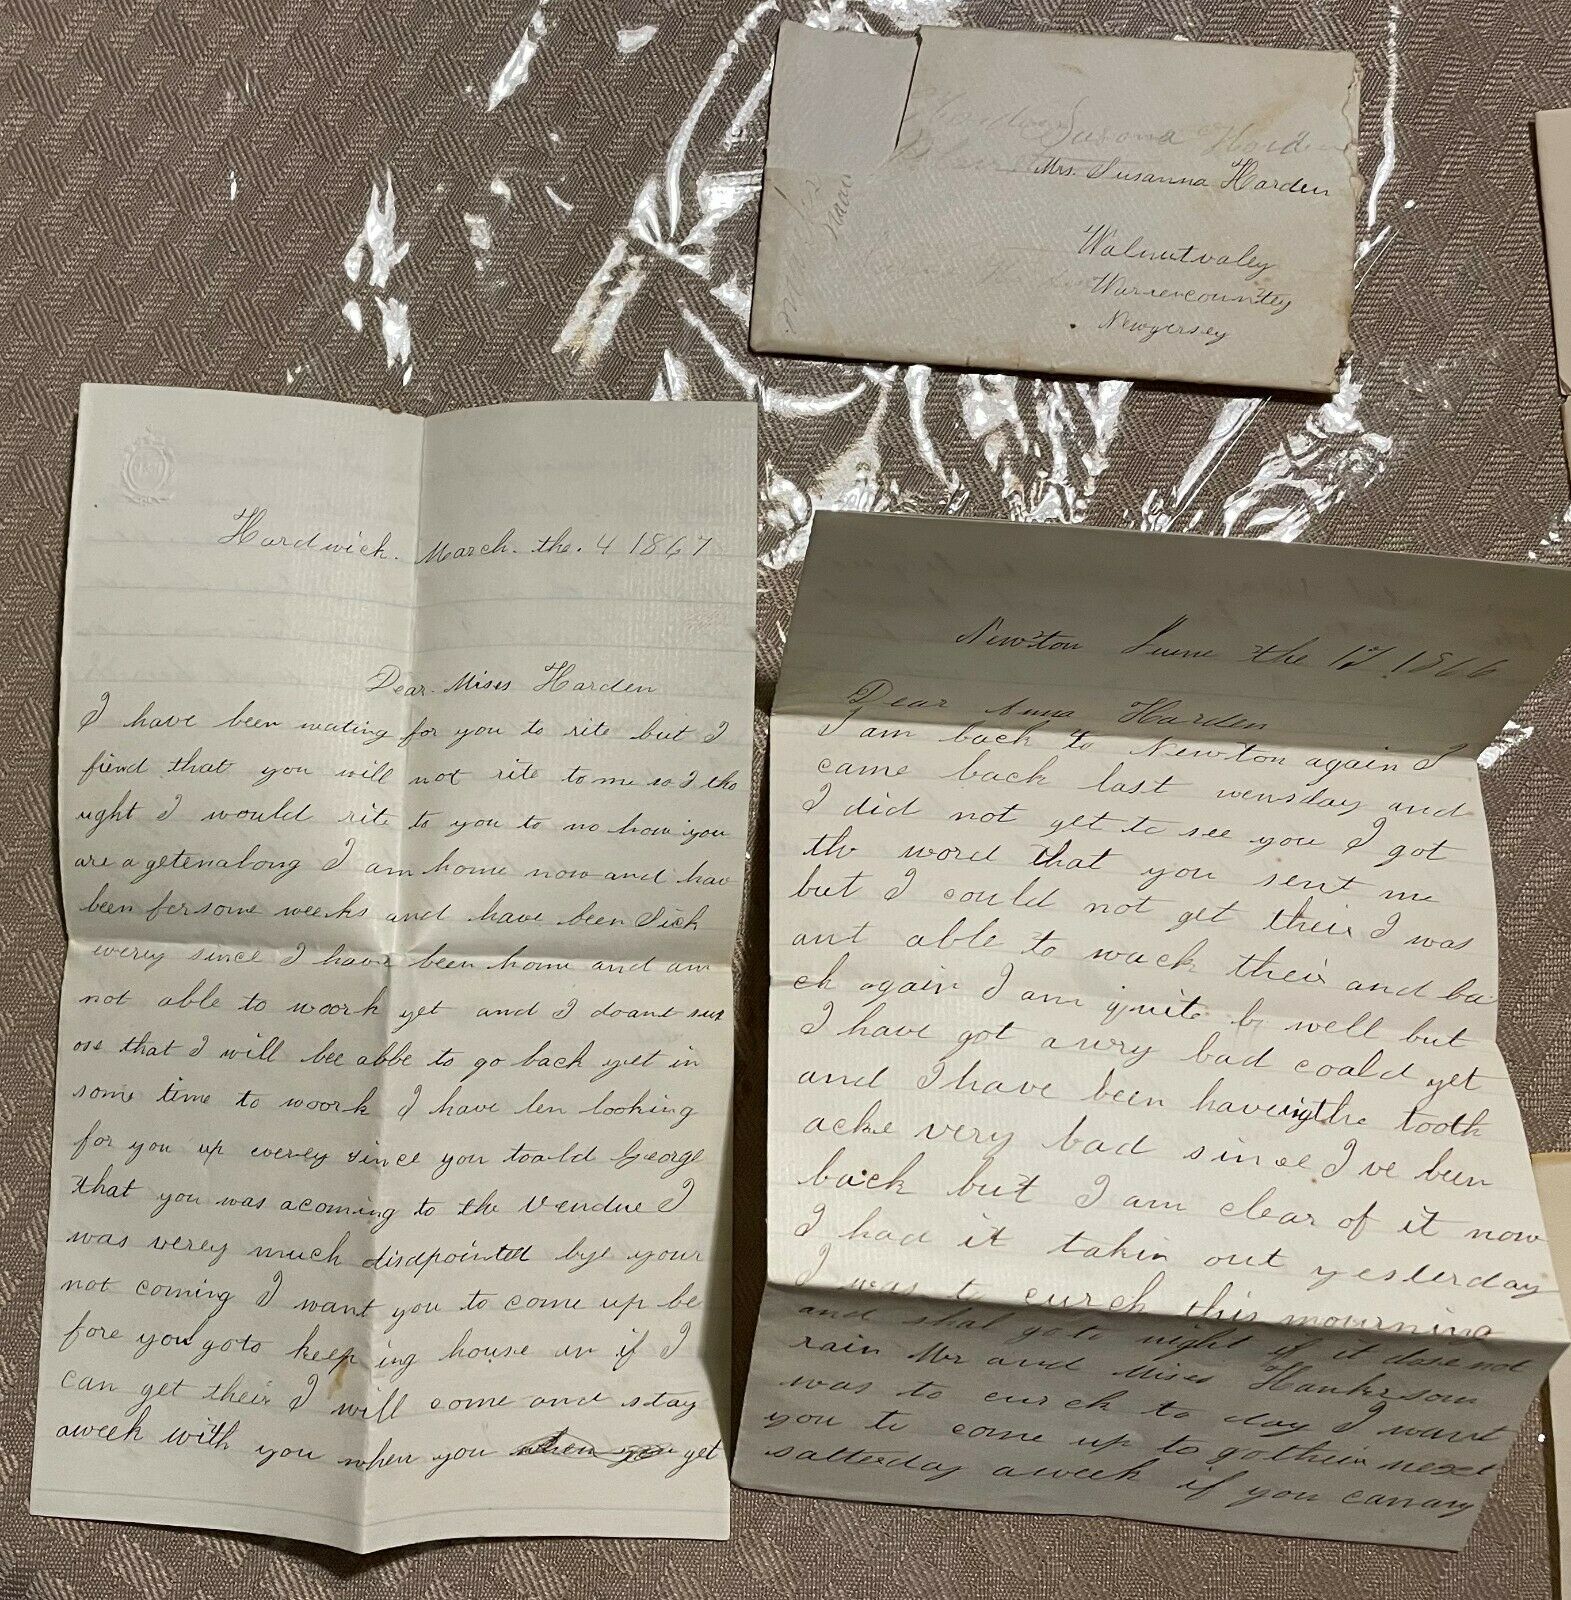 Susana Harden
Mrs. Susanna Harden
Walnutvaley
Warrencountey
Newgersey
Hardwich. March. the. 4 1867
Dear. Mises Harden
I have been wating for you to rite but I
fiend that you will not rite to me so I tho
ught I would rite to you to no how you
are a getenalong I am home now and hav
been fersome weeks and have been Sick
everey since I have been home and am
not able to woork yet and I doant sup
ose that I will bee abbe to go back yet in
some time to woork I have ben looking
for you up everey since you toald George
that you was acoming to the Vendue I
was verey much disapointed bye your
not coming I want you to come up be
fore you goto keep ing house an if I
can get their I will come and stay
aweek with you when you when you get
Newton Juene the 17 1866
Dear Anna Harden
I am back to Newton again I
came back last wensday and
I did not get to see you I got
the word that you sent me
but I could not get their I was
ant able to wack their and ba
ck again I am quite well but
I have got a wry bad coald yet
and I have been haveingthe tooth
acke very bad since I've bun
back but I am clear of it now
I had it takin out yesterday
I was to curch this mourning
and shal goto night if it dose not
rain Mr and Mises Hankerson
was to curch to day I want
you to come up to gotheir next
satterday aweek if you canany